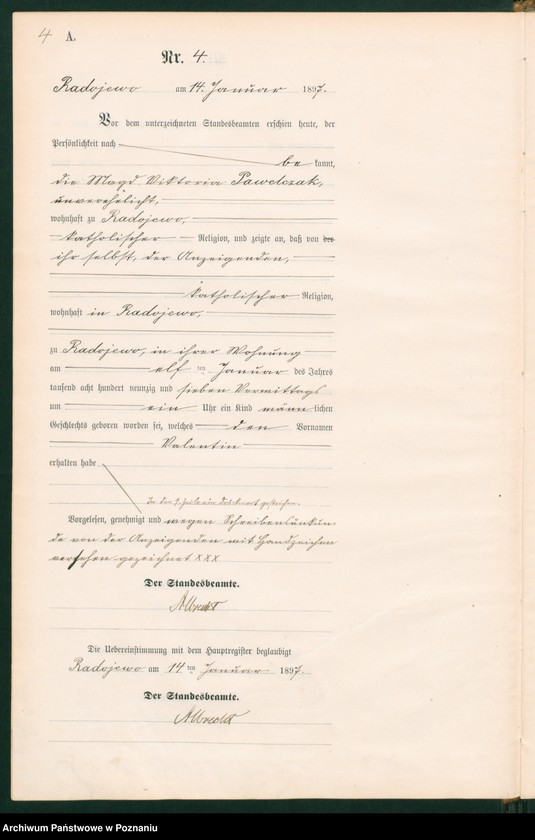 4 A.
Nr. 4.
Radojewo am 14. Januar 1897.
Vor dem unterzeichneten Standesbeamten erschien heute, der
Persönlichkeit nach
be kannt,
die Magd Viktoria Pawelczak,
unverehelicht,
wohnhaft zu Radojewo,
katholischer Religion, und zeigte an, daß von der
ihr selbst, der Anzeigenden,
katholischer Religion,
wohnhaft in Radojewo,
zu Radojewo, in ihrer Wohnung
am elf ten Januar des Jahres
tausend acht hundert neunzig und sieben Vormittags
um ein Uhr ein Kind männ lichen
Geschlechts geboren worden sei, welches den Vornamen
Valentin
erhalten habe
In der 9. Zeile ein Druckwort gestrichen.
Vorgelesen, genehmigt und wegen Schreibensunkun-
de von der Anzeigenden mit Handzeichen
versehen gezeichnet XXX
Der Standesbeamte.
Albrecht
Die Uebereinstimmung mit dem Hauptregister beglaubigt
Radojewo am 14 ten Januar 1897.
Der Standesbeamte.
Albrecht
Archiwum Państwowe w Poznaniu